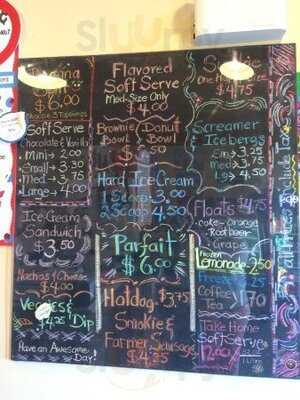 Flavored
Soft Serve
Med-Size Only
$4.00
$6.00
Choose 3 Toppings
Soft Serve
Chocolate & Vanilla
Mini → 2.00
Small → 3.50
Med → 3.75
Large → 4.00
Ice-Cream
Sandwich
$3.50
Nachos & Cheese
$4.00
Veggies &
$4.25 Dip
Have an Awesome
Day!
Brownie Donut
Bowl Bowl
Hard Ice Cream
1 Scoop 3.00
2 Scoop 4.50
Parfait
$6.00
Hotdog $3.75
Smokie &
Farmer Sausage
$4.25
$4.75
Screamer
& Icebergs
Sm → 3.25
Med → 3.75
Lg → 4.50
Floats $4.75
Coke - Orange
Root beer
Grape
Lemonade 2.50
Coffee
Tea 1.70
Take Home
Soft Serve